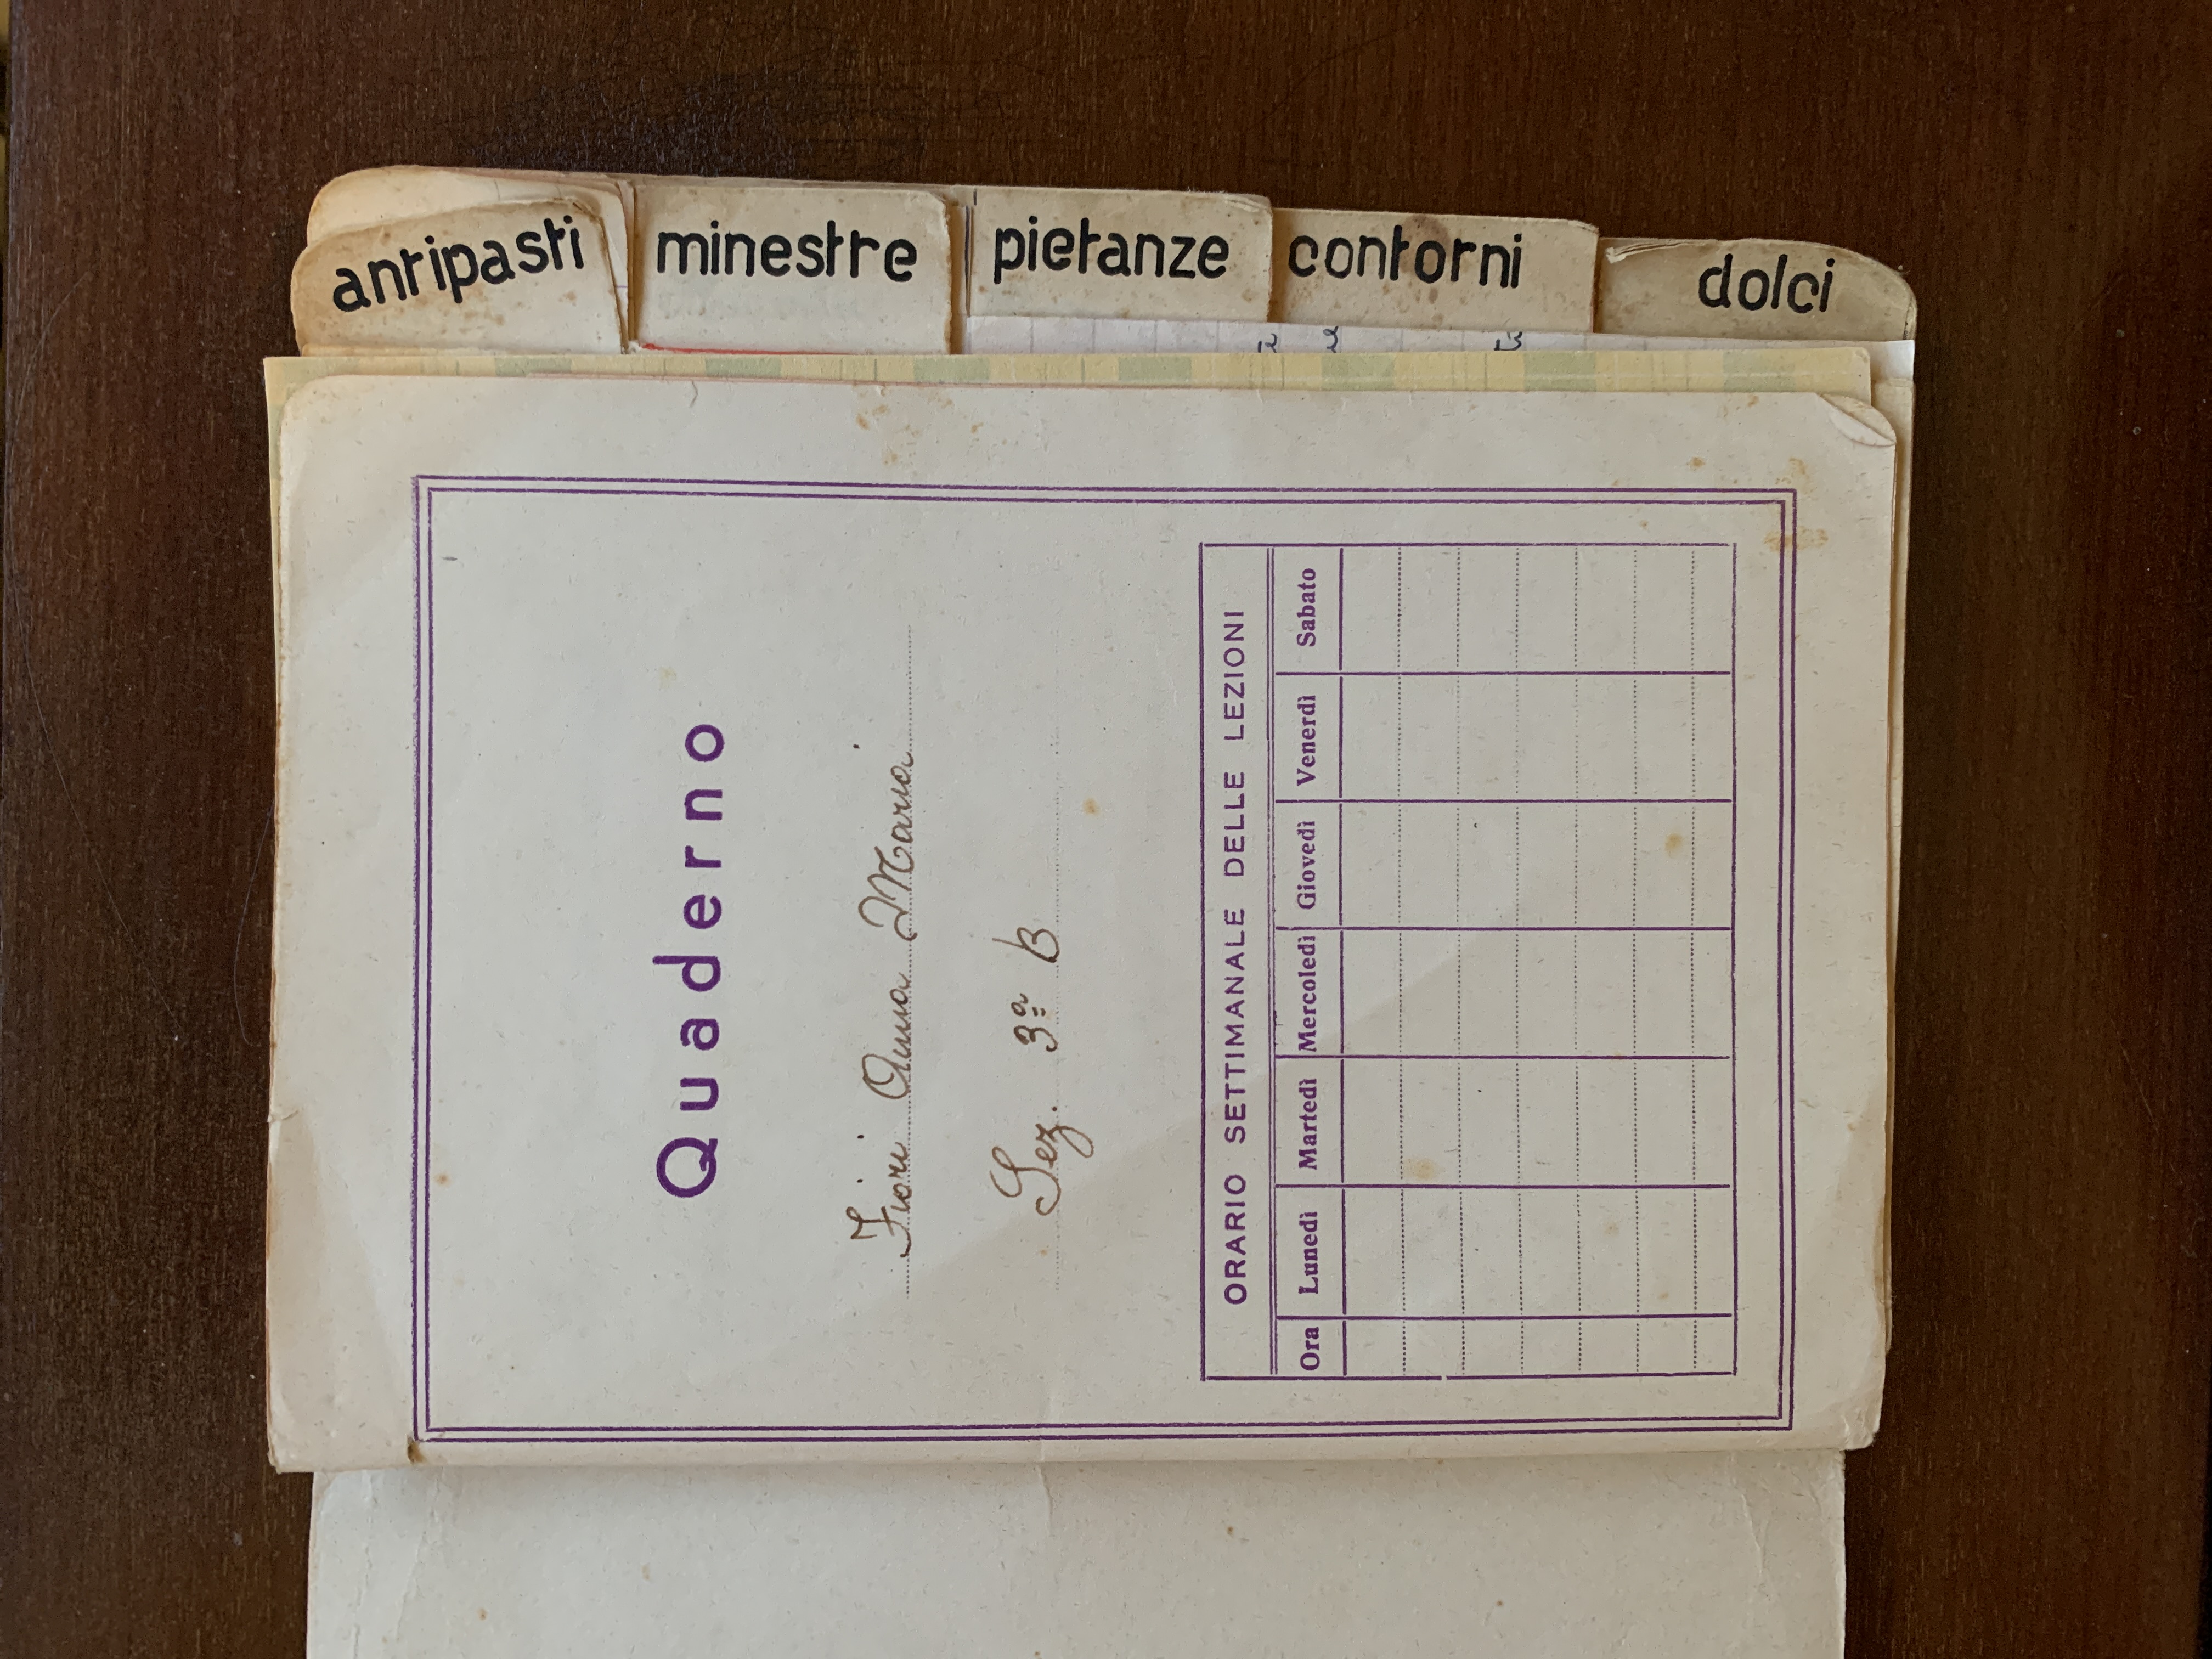 Quaderno
Fiori Anna Maria
Sez. 3ª B
ORARIO SETTIMANALE DELLE LEZIONI
Ora Lunedì Martedì Mercoledì Giovedì Venerdì Sabato
antipasti
minestre
pietanze
contorni
dolci